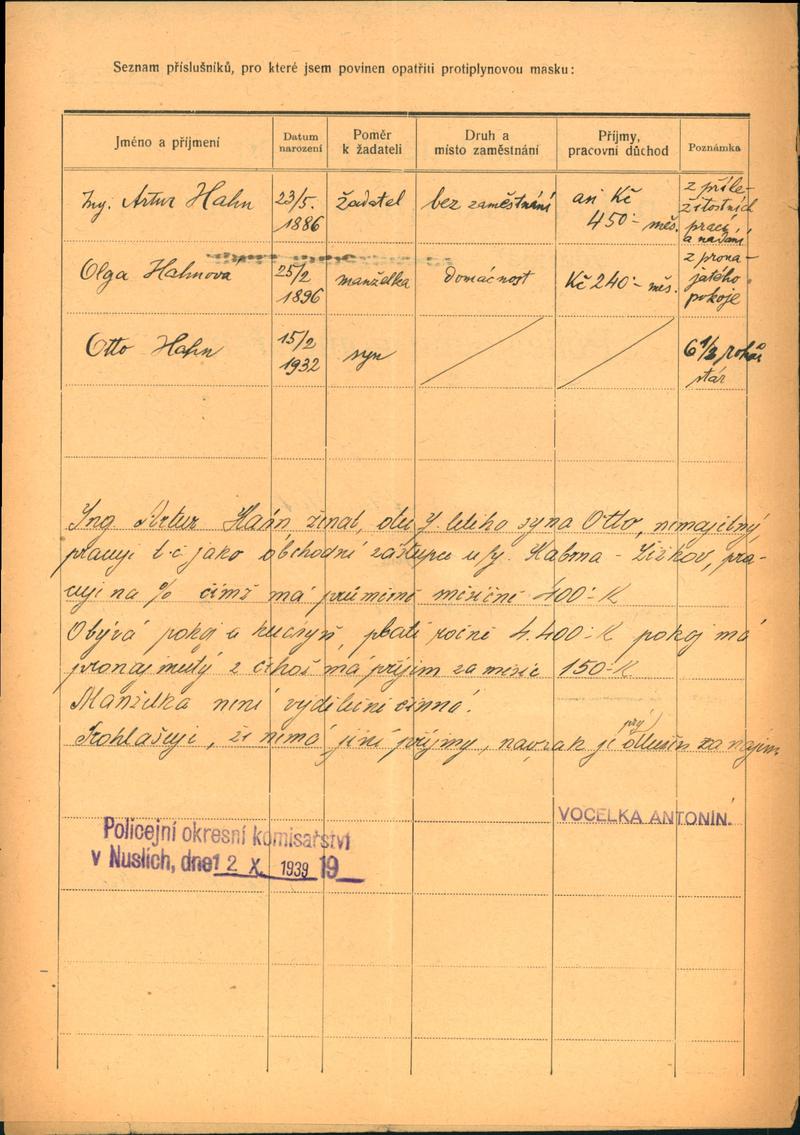 Seznam příslušníků, pro které jsem povinen opatřiti protiplynovou masku:
Jméno a příjmení
Datum narození
Poměr k žadateli
Druh a místo zaměstnání
Příjmy, pracovní důchod
Poznámka
Ing. Artur Hahn 23/5. 1886 žadatel bez zaměstnání asi Kč 450·- měs. z příle-
žitostních
prací
a nadání
Olga Hahnová 25/2 1896 manželka domácnost Kč 240·- měs. z prona-
jatého
pokoje
Otto Hahn 15/2 1932 syn 6 1/2 roků
stár
Ing Artur Hahn ženat, otec 7. letého syna Otto, nemajetný
pracuje t č jako obchodní zástupce u fy. Habrna - Žižkov, pra-
cuje na % čímž má průměrně měsíčně 400·- K
Obývá pokoj a kuchyň, platí ročně 4.400·- K pokoj má
pronajmutý z čehož má příjem za měsíc 150·- K
Manželka není výdělečně činná.
Prohlašuje, že nemá jiné příjmy, naopak je prý dlužen za nájem
Policejní okresní komisařství
v Nuslích, dne 12 X. 1939 19
VOCELKA ANTONÍN.